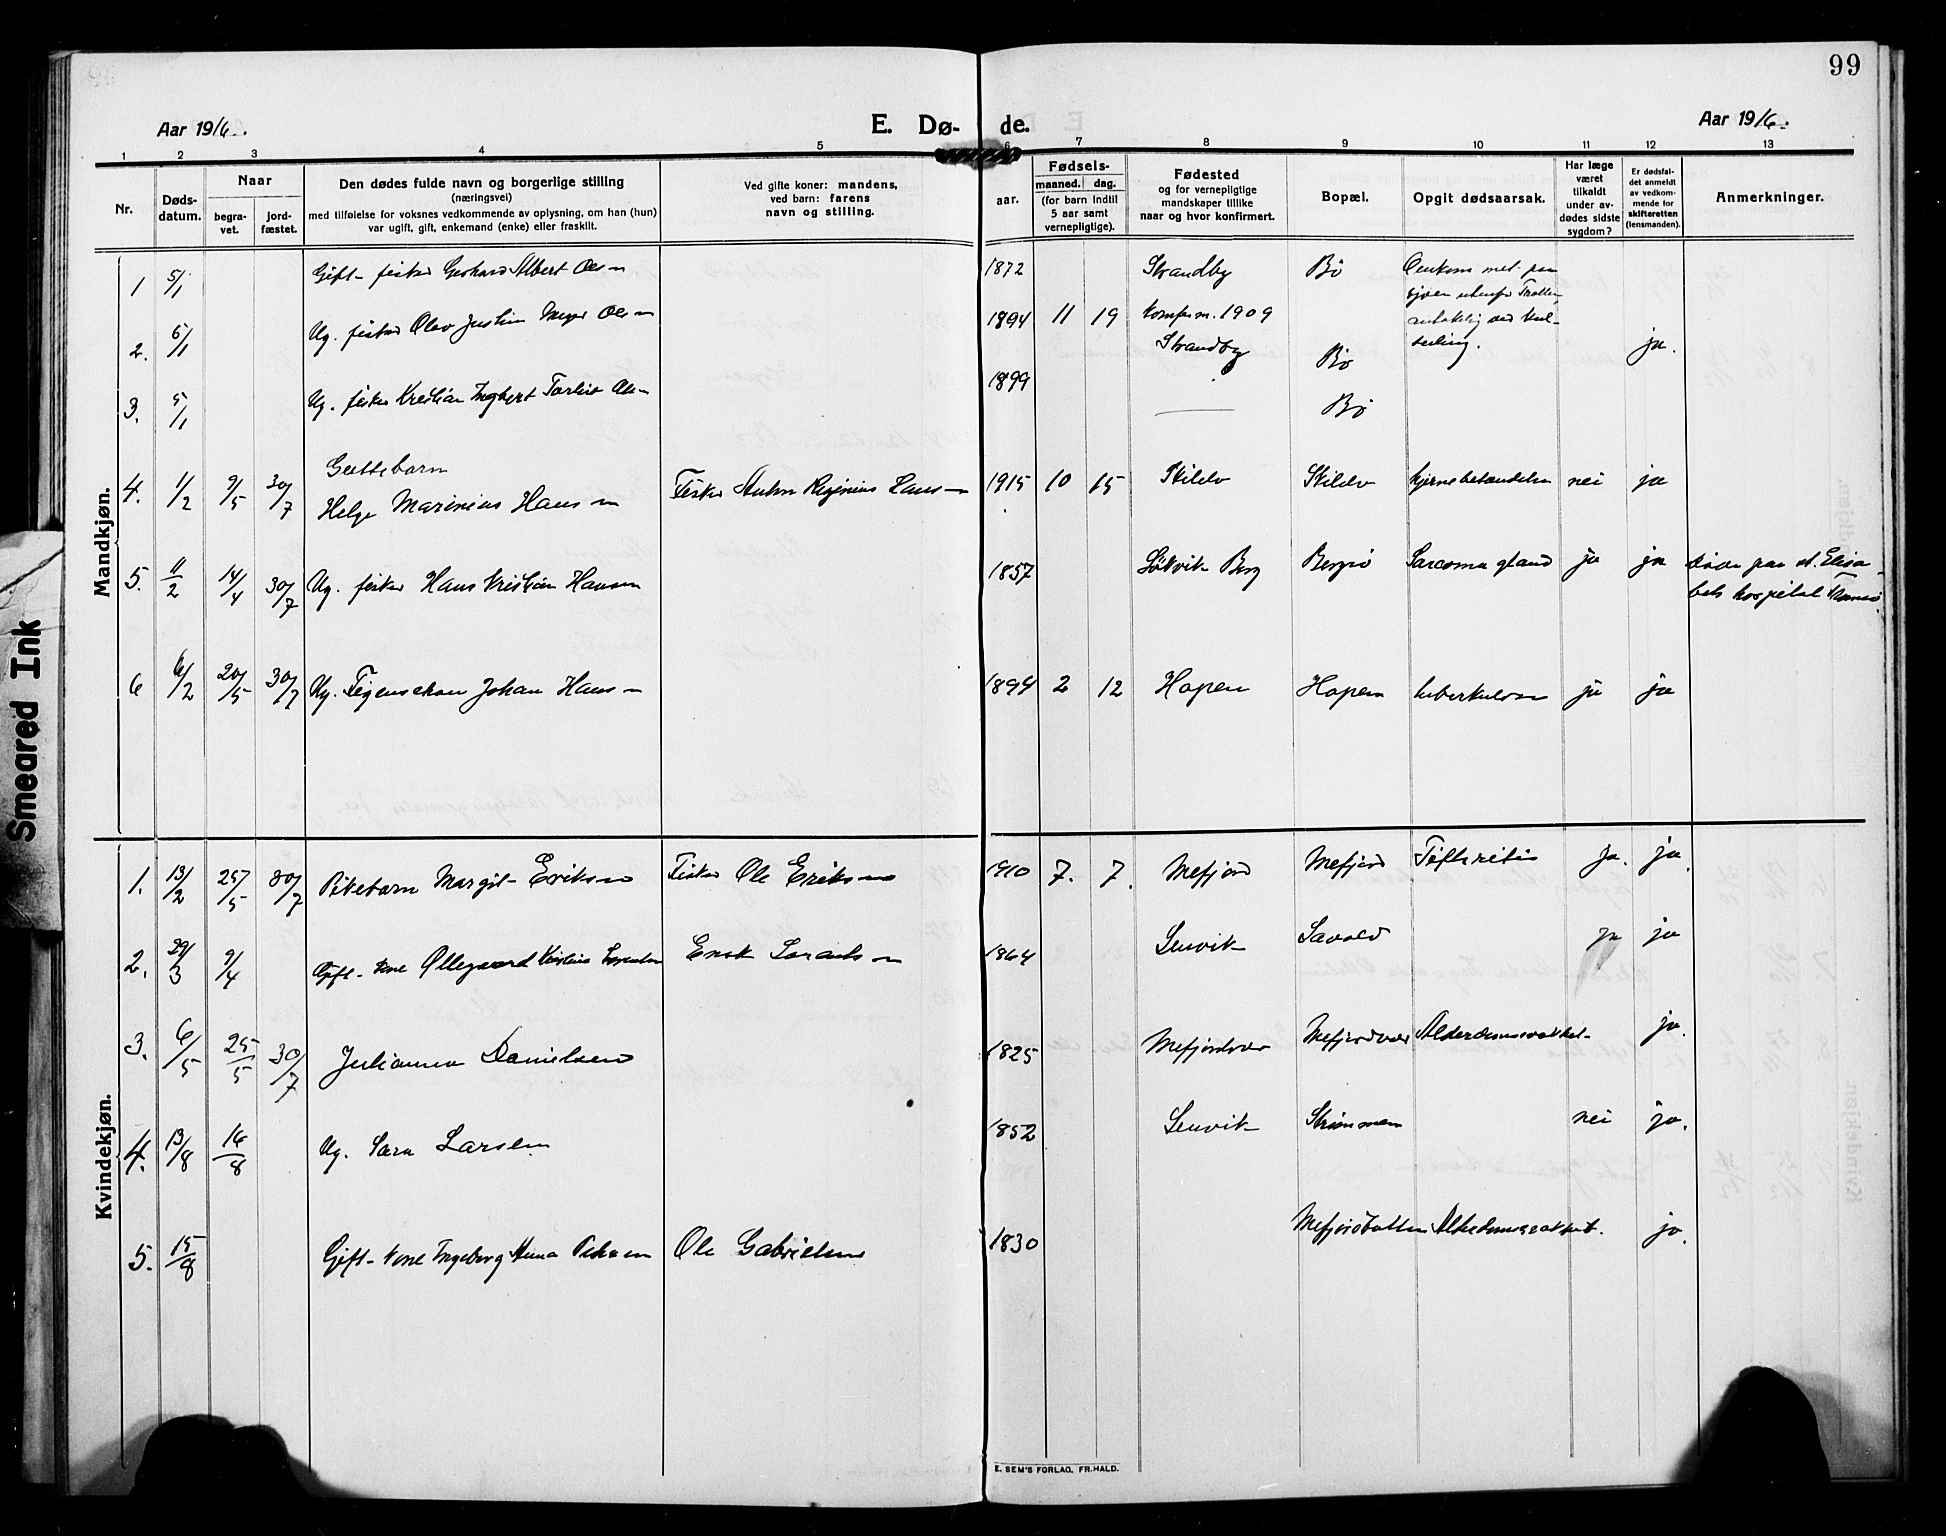 99
Aar 1916.
E. Dø-
de.
Aar 1916.
1 2 3 4 5 6 7 8 9 10 11 12 13
Nr.
Døds-
datum.
Naar
begra-
vet.
jord-
fæstet.
Den dødes fulde navn og borgerlige stilling
(næringsvei)
med tilføielse for voksnes vedkommende av oplysning, om han (hun)
var ugift, gift, enkemand (enke) eller fraskilt.
Ved gifte koner: mandens,
ved barn: farens
navn og stilling.
Fødsels-
aar.
maaned. dag.
(for barn indtil
5 aar samt
vernepligtige).
Fødested
og for vernepligtige
mandskaper tillike
naar og hvor konfirmert.
Bopæl.
Opgit dødsaarsak.
Har læge
været
tilkaldt
under av-
dødes sidste
sygdom?
Er dødsfal-
det anmeldt
av vedkom-
mende for
skifteretten
(lensmanden).
Anmerkninger.
Mandkjøn.
1 5/1 Gift fisker Gerhard Albert Olsen 1872 Strandby Bö
2. 5/1 Ug. fisker Olav Justin Meyer Olsen 1894 11 19 Konferm. 1909
Strandby Bö ja.
3. 5/1 Ug. fisker Kristian Ingbert Torleif Olsen 1899 Bö
Guttebarn
4. 1/2 9/5 30/7 Helge Marinius Hansen Fisker Reginius Hansen 1915 10 15 Skilelv Skilelv hjernebetændelse nei ja
5. 11/2 14/4 30/7 Ug. fisker Hans Kristian Hansen 1857 Berg Sarcoma gland ja ja döde paa st. Elisa-
bets hospital Tromsö.
6 6/2 20/5 30/7 Ug. Johan Hansen 1894 2 12 Hopen Hopen tuberkulose ja ja
Kvindekjøn.
1. 13/2 25/5 30/7 Pikebarn Margit Eriksen Fisker Ole Eriksen 1910 7. 7. Mefjord Mefjord ja. ja.
2. 29/3 9/4 Gift kone Øllegaard Kristine Enok 1864 Lenvik ja ja
3. 6/5 25/5 30/7 Julianna Danielsen 1825 Mefjordvær Mefjordvær ja.
4. 13/8 16/8 Ug. Sara Larsen 1852 Lenvik Strömmen nei ja.
5. 15/8 Gift kone Ingeborg Anna Ole Gabrielsen 1830 Mefjordbotten ja.
E. SEM'S FORLAG, FR.HALD.
Smeared Ink